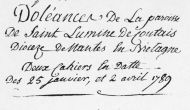 Doléances De La paroisse
De Saint Lumine de Coutais
Diocèze de Nantes en Bretagne
Deux Cahiers en Datte
Des 25 janvier, et 2 avril 1789